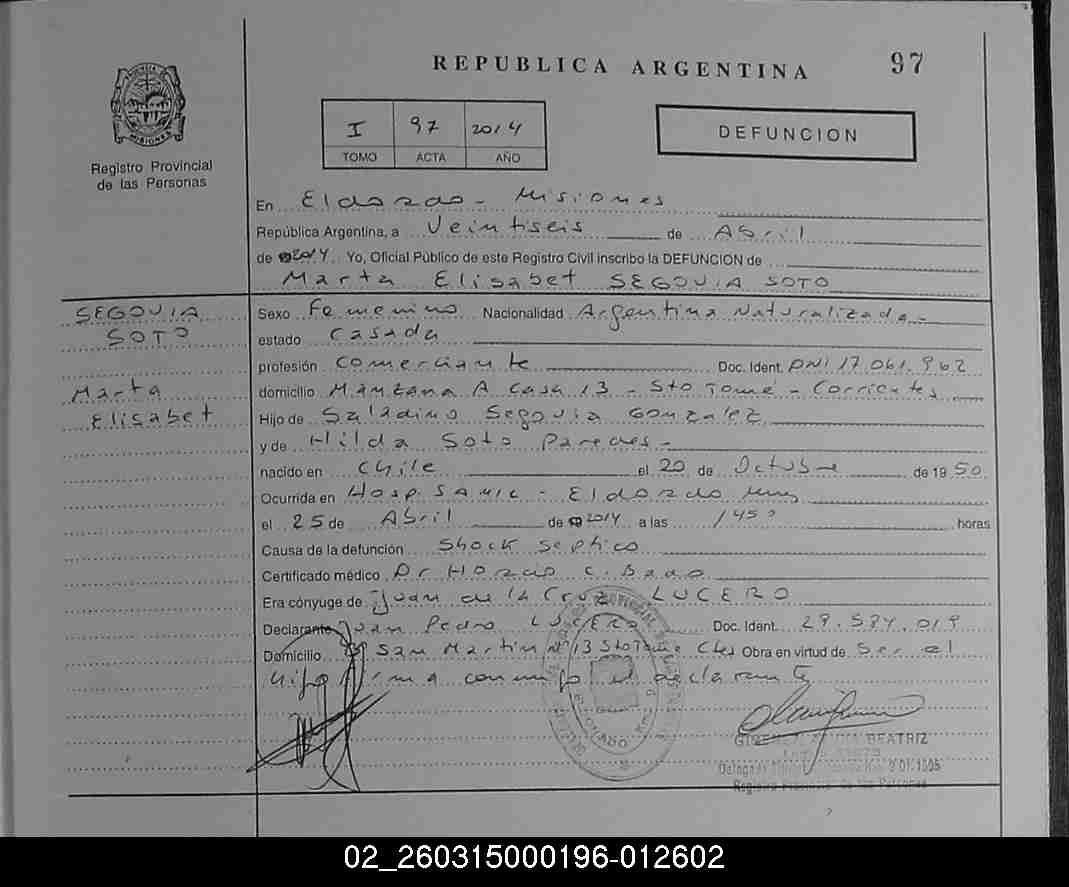 REPUBLICA ARGENTINA
97
I 97 2014
TOMO ACTA AÑO
DEFUNCION
Registro Provincial
de las Personas
En Eldorado - Misiones
República Argentina, a Veintiseis de Abril
de 2014 Yo, Oficial Público de este Registro Civil inscribo la DEFUNCION de
Marta Elisabet SEGOVIA SOTO
SEGOVIA
SOTO
Marta
Elisabet
Sexo Femenino Nacionalidad Argentina Naturalizada -
estado Casada
profesión comerciante Doc. Ident. DNI 17.061.962
domicilio Manzana A Casa 13 - Sto Tomé - Corrientes
Hijo de Saladino Segovia Gonzalez
y de Hilda Soto Paredes -
nacido en Chile el 20 de Octubre de 1950
Ocurrida en Hosp. SAMIC - Eldorado
el 25 de Abril de 2014 a las 1450 horas
Causa de la defunción Shock septico
Certificado médico Dr Horacio C. Bado
Era cónyuge de Juan de la Cruz LUCERO
Declarante Juan Pedro LUCERO Doc. Ident. 29.584.019
Domicilio San Martin nº 13 Sto Tome Ctes Obra en virtud de Ser el
hijo firma conmigo el declarante
BEATRIZ
Registro Provincial de las Personas
02_260315000196-012602